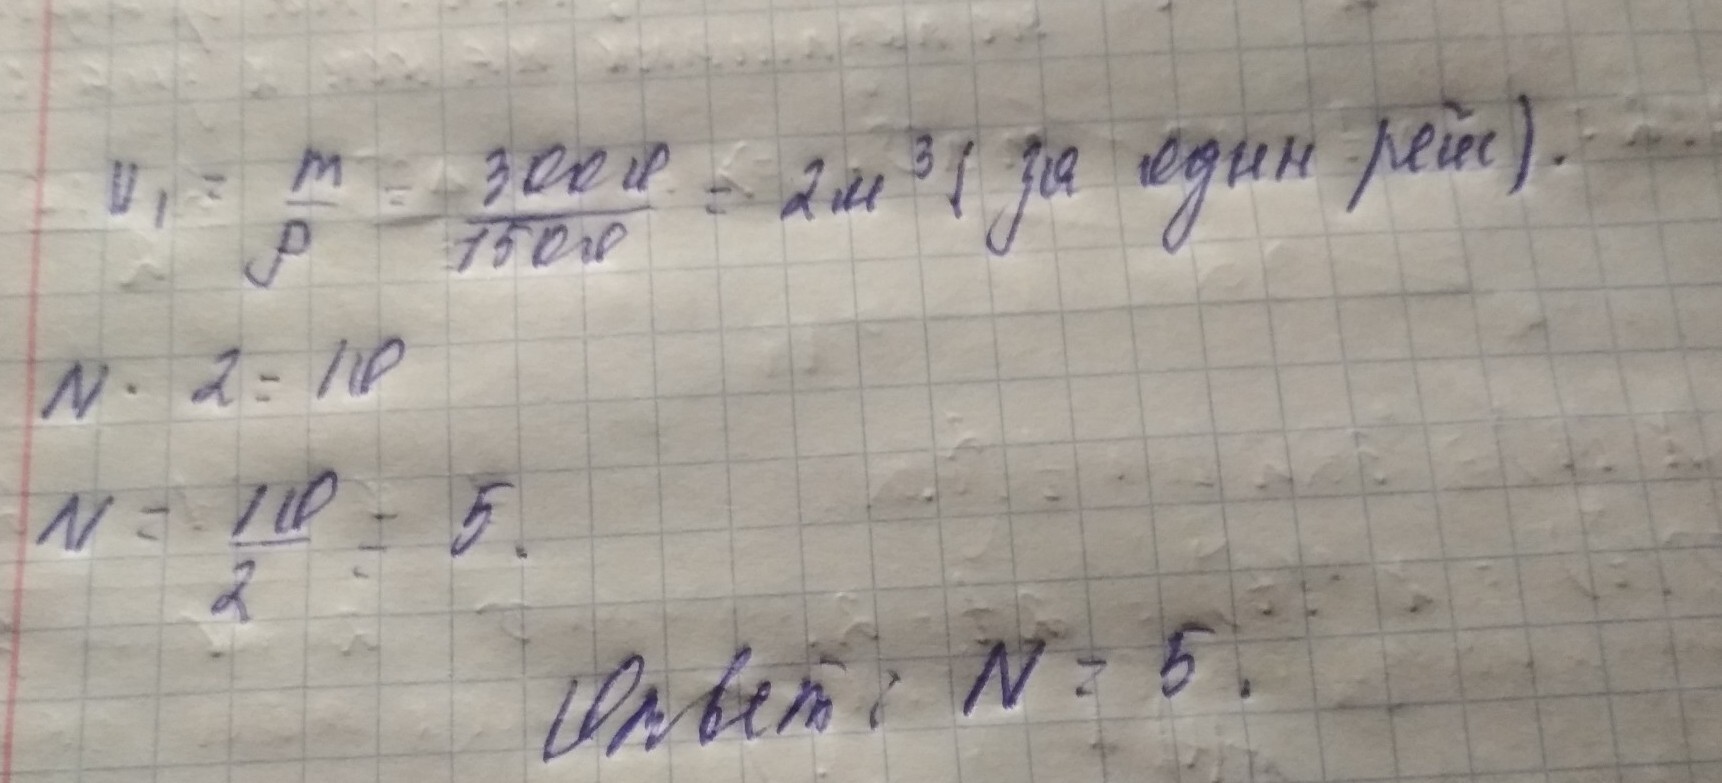 V₁ = m/ρ = 3000/1500 = 2м³ (за один рейс).
N · 2 = 10
N = 10/2 = 5.
Ответ: N = 5.